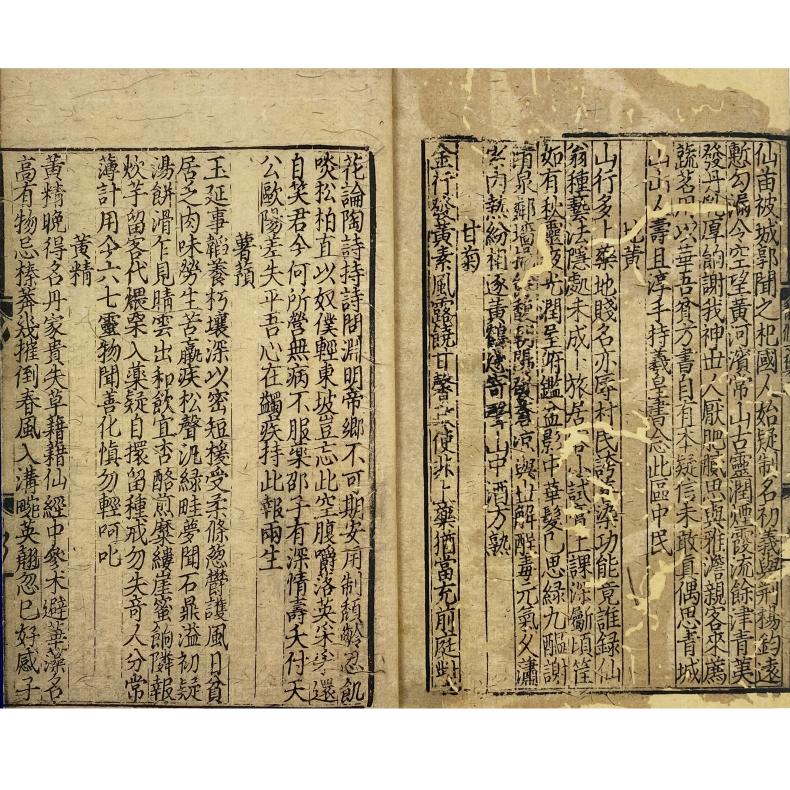 仙苗被城郭聞之杞國人始疑制名初義與荊楊鈞遠
慙勾漏令空望黃河濱常山古靈潤煙霞流餘津青荑
發丹乳厚餉謝我神世人厭肥膿思與雅澹親客來薦
蔬茗四以華吾貧方書自有本疑信未敢真偶思青城
山山人壽且淳手持羲皇書念此區中民
地黃
山行多上藥地賤名亦辱村民訪染功能竟誰録仙
翁種藝法隱處未成卜旅居小試官上課深斸頃筐
如有秋靈夜光潤呈府鑑血影中華髮已思緑九醖謝
清泉解毒元氣父瀟
玄内熱紛相逐黃山中酒方熟
甘菊
金行發黃素風露饒甘馨使非上藥猶當充前庭對
花論陶詩持詩問淵明帝鄉不可期安用制頽齡忍飢
啖松柏直以奴僕輕東坡豈忘此空腹嚼落英采采還
自笑君今何所營無病不服藥邵子有深情壽夭付天
公歐陽差失平吾心在蠲疾持此報兩生
薯蕷
玉延事韜養朽壤深以密短橯受柔條葱欝護風日貧
居乏肉味勞生苦羸疾松聲汎緑畦夢聞石鼎溢初疑
湯餅滑乍見晴雲出和飲宜杏酪煎糜縷崖蜜餉隣報
炊芋留客代煨栗入藥疑自擐留種戒勿失竒人分常
薄計用今六七靈物聞善化慎勿輕呵叱
黃精
黃精晚得名丹家貴失草藉藉仙經中參朮避華藻名
高有物忌榛莽㡬摧倒春風入溝畹英翹忽已好感子